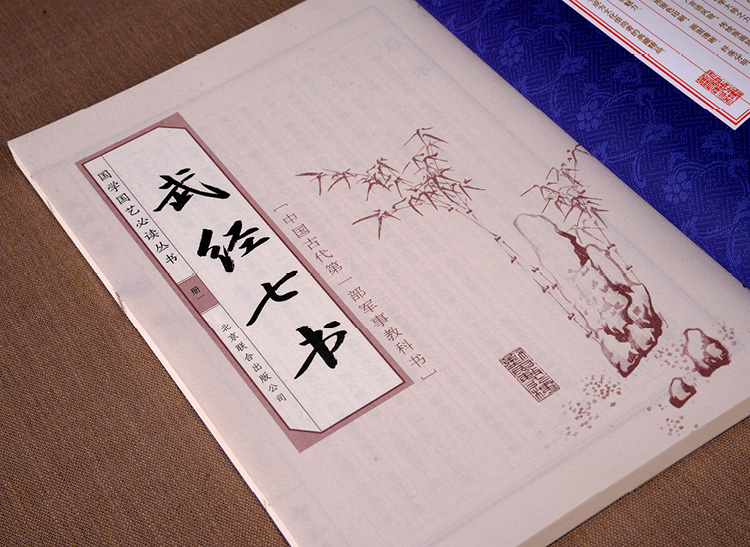 国学国艺必读丛书
册一
北京联合出版公司
武经七书
[中国古代第一部军事教科书]